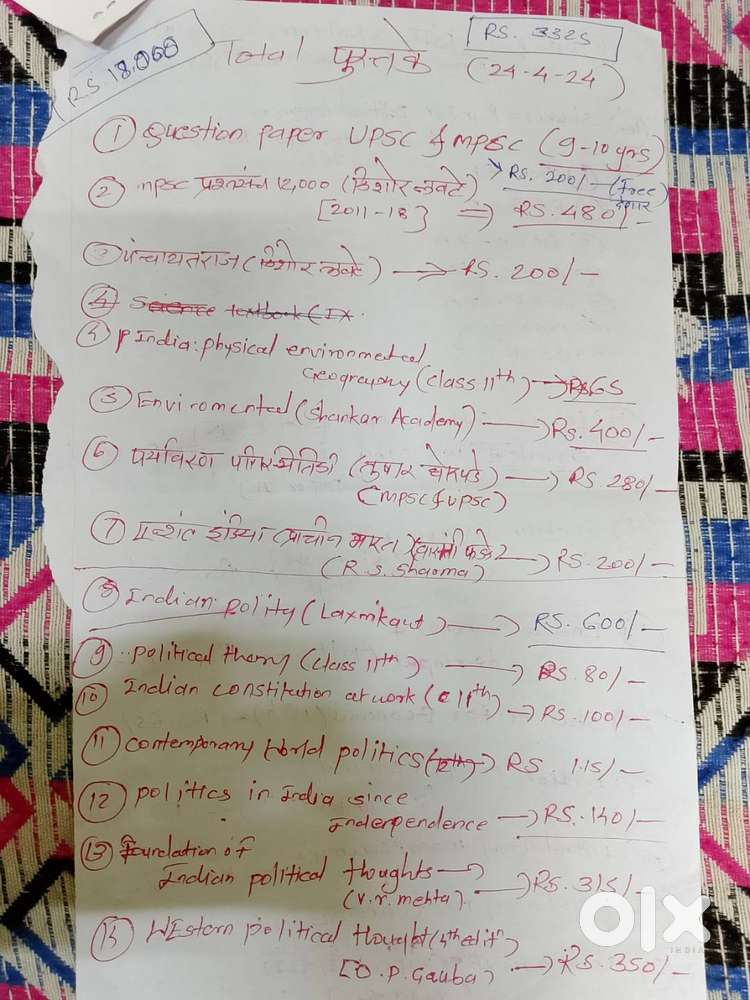 RS 18,000
Total पुस्तके
RS. 3325
(24-4-24)
① Question paper UPSC & MPSC (9-10 yrs)
→ RS. 200/- (Free)
② MPSC प्रश्नसंच 12,000 (किशोर लवटे)
[2011-18] ⇒ RS. 480/-
③ पंचायतराज (किशोर लवटे) → RS. 200/-
④ Science textbook (IX
④ P India: physical environmental
Geography (class 11th) → RS 65
⑤ Enviromental (Shankar Academy) → Rs. 400/-
⑥ पर्यावरण परिस्थितिकी (तुषार घोरपडे) → RS 280/-
(MPSC & UPSC)
⑦ एन्शंट इंडिया (प्राचीन भारत) → RS. 200/-
(R. S. Sharma)
⑧ Indian polity (Laxmikant) → RS. 600/-
⑨ political theory (class 11th) → RS. 80/-
⑩ Indian constitution at work (c 11th) → RS. 100/-
⑪ contemporary world politics (12th) → RS 115/-
⑫ politics in India since
Inderpendence → RS. 140/-
⑬ Foundation of
Indian political thoughts →
(V.r. mehta) → RS. 315/-
WEstern political thought (4th edit)
[O. P. Gauba) → RS. 350/-
olx
INDIA